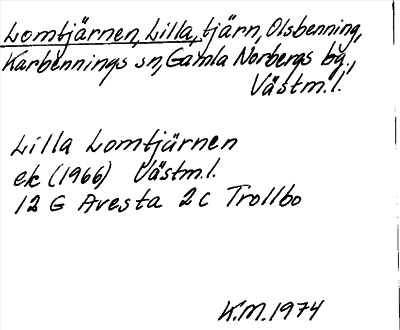 Lomtjärnen, Lilla, tjärn, Olsbenning,
Karbennings sn, Gamla Norbergs bg.,
Västm.l.
Lilla Lomtjärnen
ek (1966) Västm.l.
12 G Avesta 2 c Trollbo
K.M. 1974